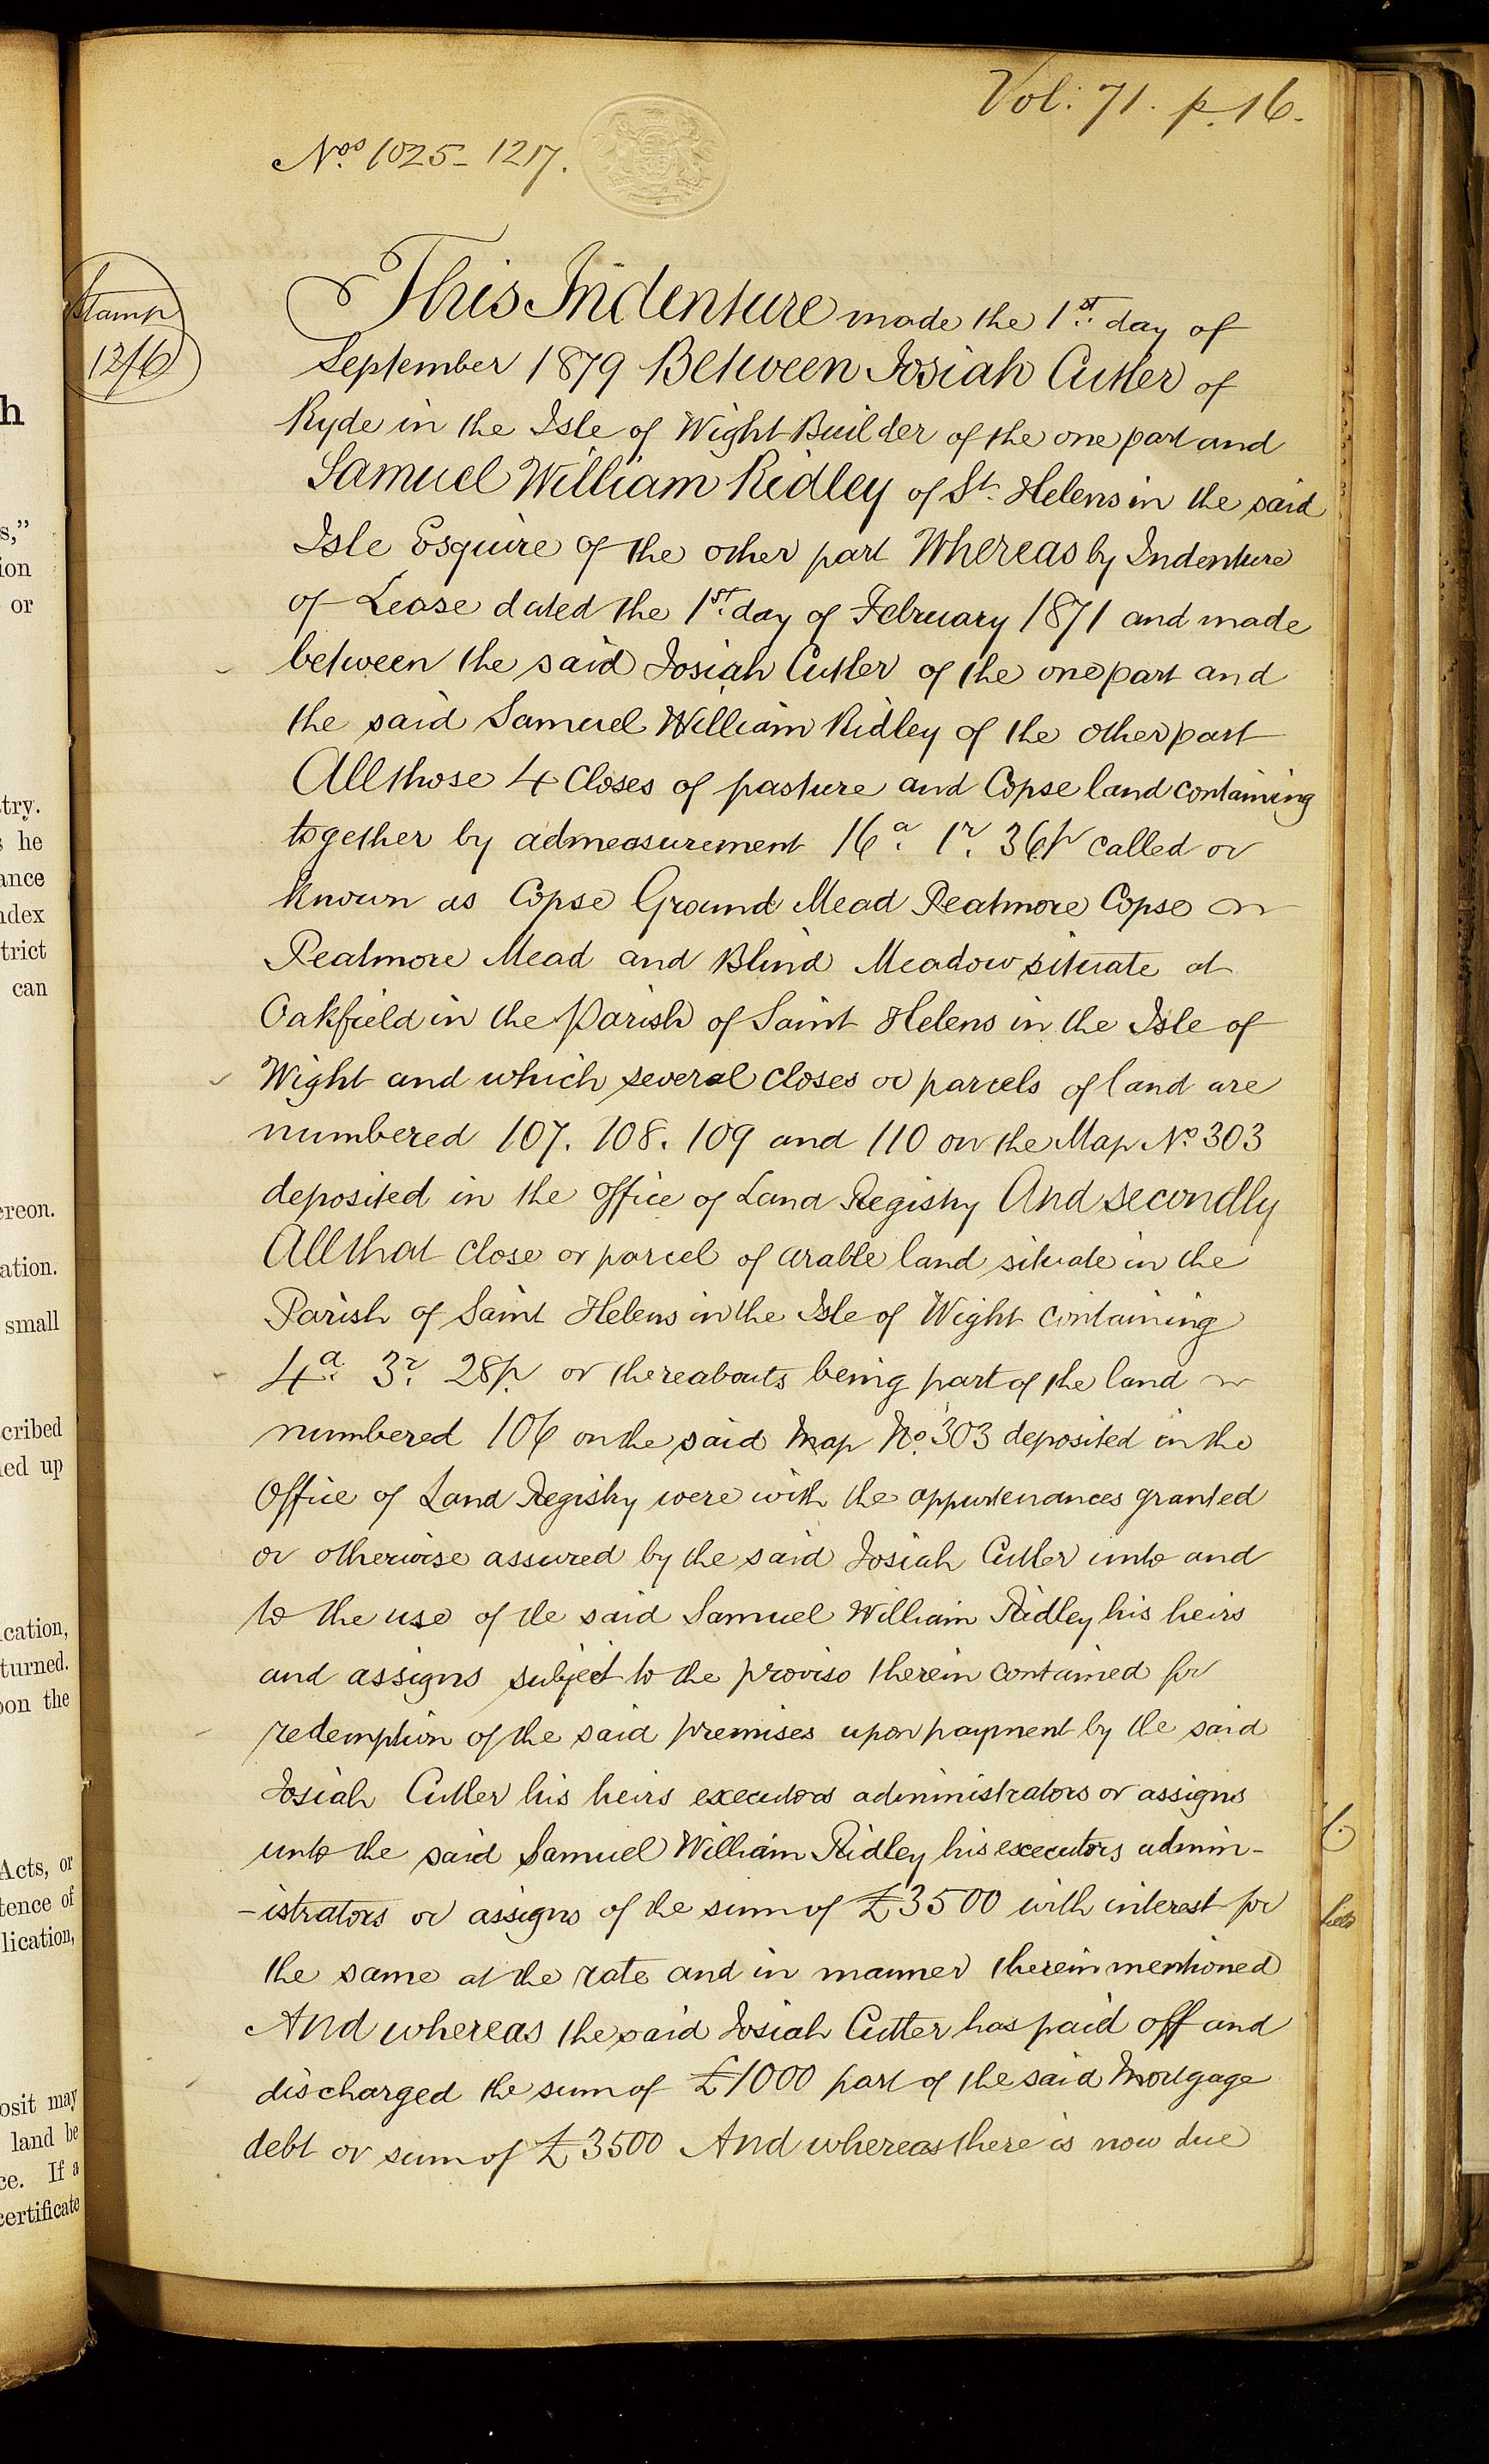 Vol: 71. p. 16.
Nos 1025-1217.
Stamp
12/6
This Indenture made the 1st day of
September 1879 Between Josiah Cutler of
Ryde in the Isle of Wight Builder of the one part and
Samuel William Ridley of St. Helens in the said
Isle Esquire of the other part Whereas by Indenture
of Lease dated the 1st day of February 1871 and made
between the said Josiah Cutler of the one part and
the said Samuel William Ridley of the other part
All those 4 Closes of pasture and Copse land containing
together by admeasurement 16a. 1r. 36p called or
known as Copse Ground Mead Peatmore Copse
Peatmore Mead and Blind Meadow situate at
Oakfield in the Parish of Saint Helens in the Isle of
Wight and which several closes or parcels of land are
numbered 107. 108. 109 and 110 on the Map No. 303
deposited in the office of Land Registry And secondly
All that close or parcel of arable land situate in the
Parish of Saint Helens in the Isle of Wight containing
4a. 3r. 28p. or thereabouts being part of the land
numbered 106 on the said Map No. 303 deposited in the
Office of Land Registry were with the appurtenances granted
or otherwise assured by the said Josiah Cutler unto and
to the use of the said Samuel William Ridley his heirs
and assigns subject to the proviso therein contained for
redemption of the said premises upon payment by the said
Josiah Cutler his heirs executors administrators or assigns
unto the said Samuel William Ridley his executors admin-
-istrators or assigns of the sum of £3500 with interest for
the same at the rate and in manner therein mentioned
And whereas the said Josiah Cutler has paid off and
discharged the sum of £1000 part of the said Mortgage
debt or sum of £3500 And whereas there is now due
h
s,"
ion
or
try.
s he
ance
ndex
trict
can
ereon.
ation.
small
cribed
ned up
ication,
turned.
pon the
Acts, or
tence of
lication,
osit may
land be
ce. If a
certificate